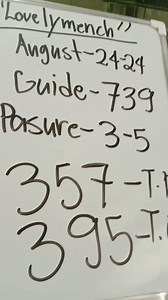 "Lovelymench"
August-24-24
Guide-739
Parsure-3-5
357-T.
395-T.